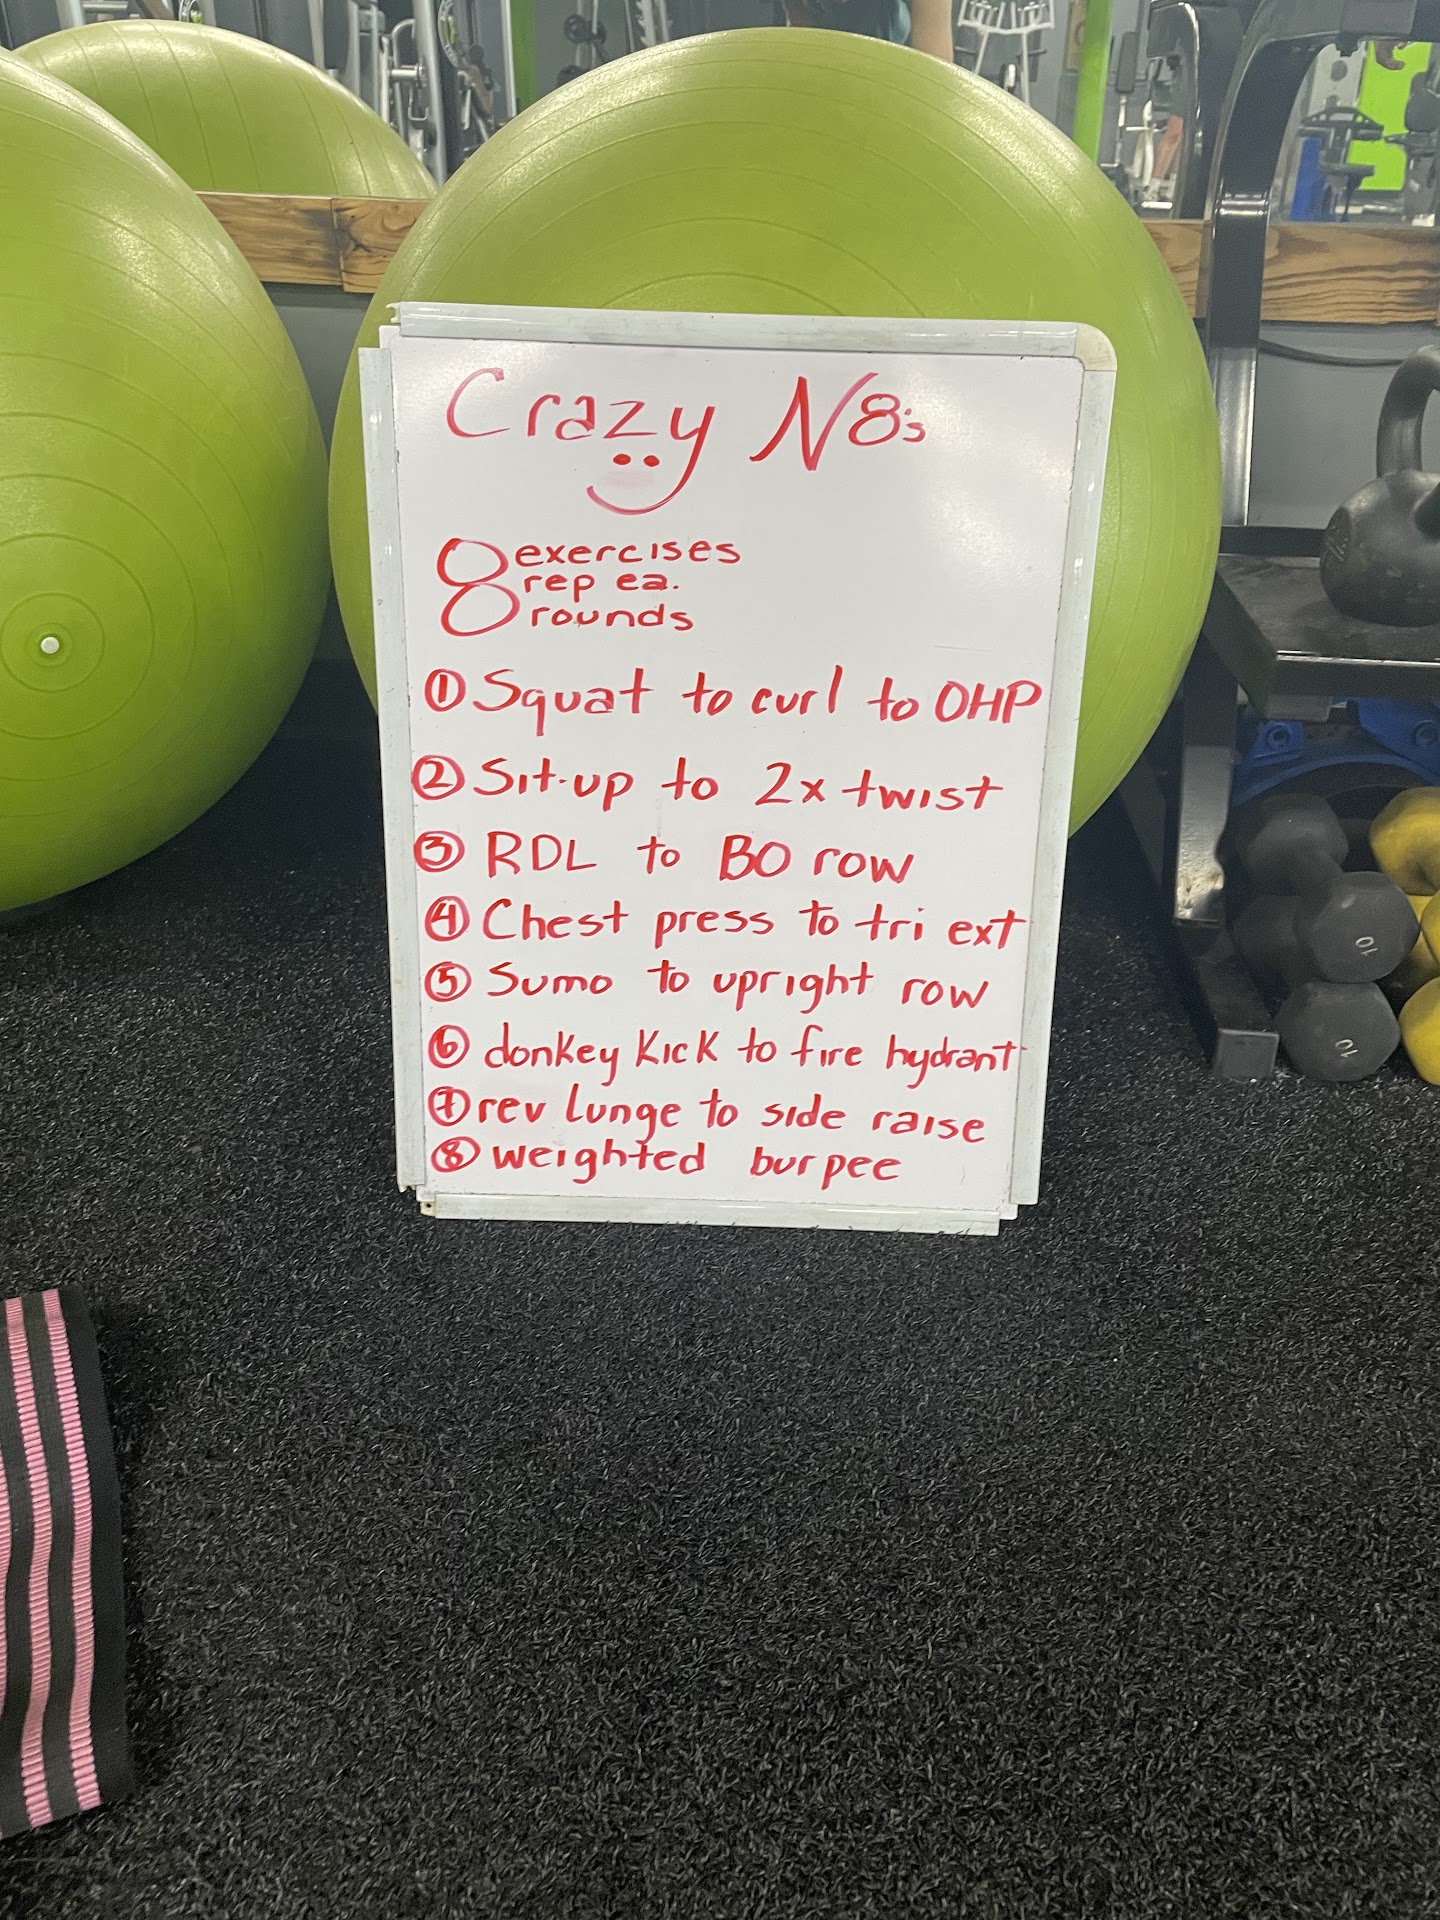 Crazy N8's
8 exercises
rep ea.
rounds
① Squat to curl to OHP
② Sit-up to 2x twist
③ RDL to BO row
④ Chest press to tri ext
⑤ Sumo to upright row
⑥ donkey Kick to fire hydrant
⑦ rev lunge to side raise
⑧ weighted burpee
10
10